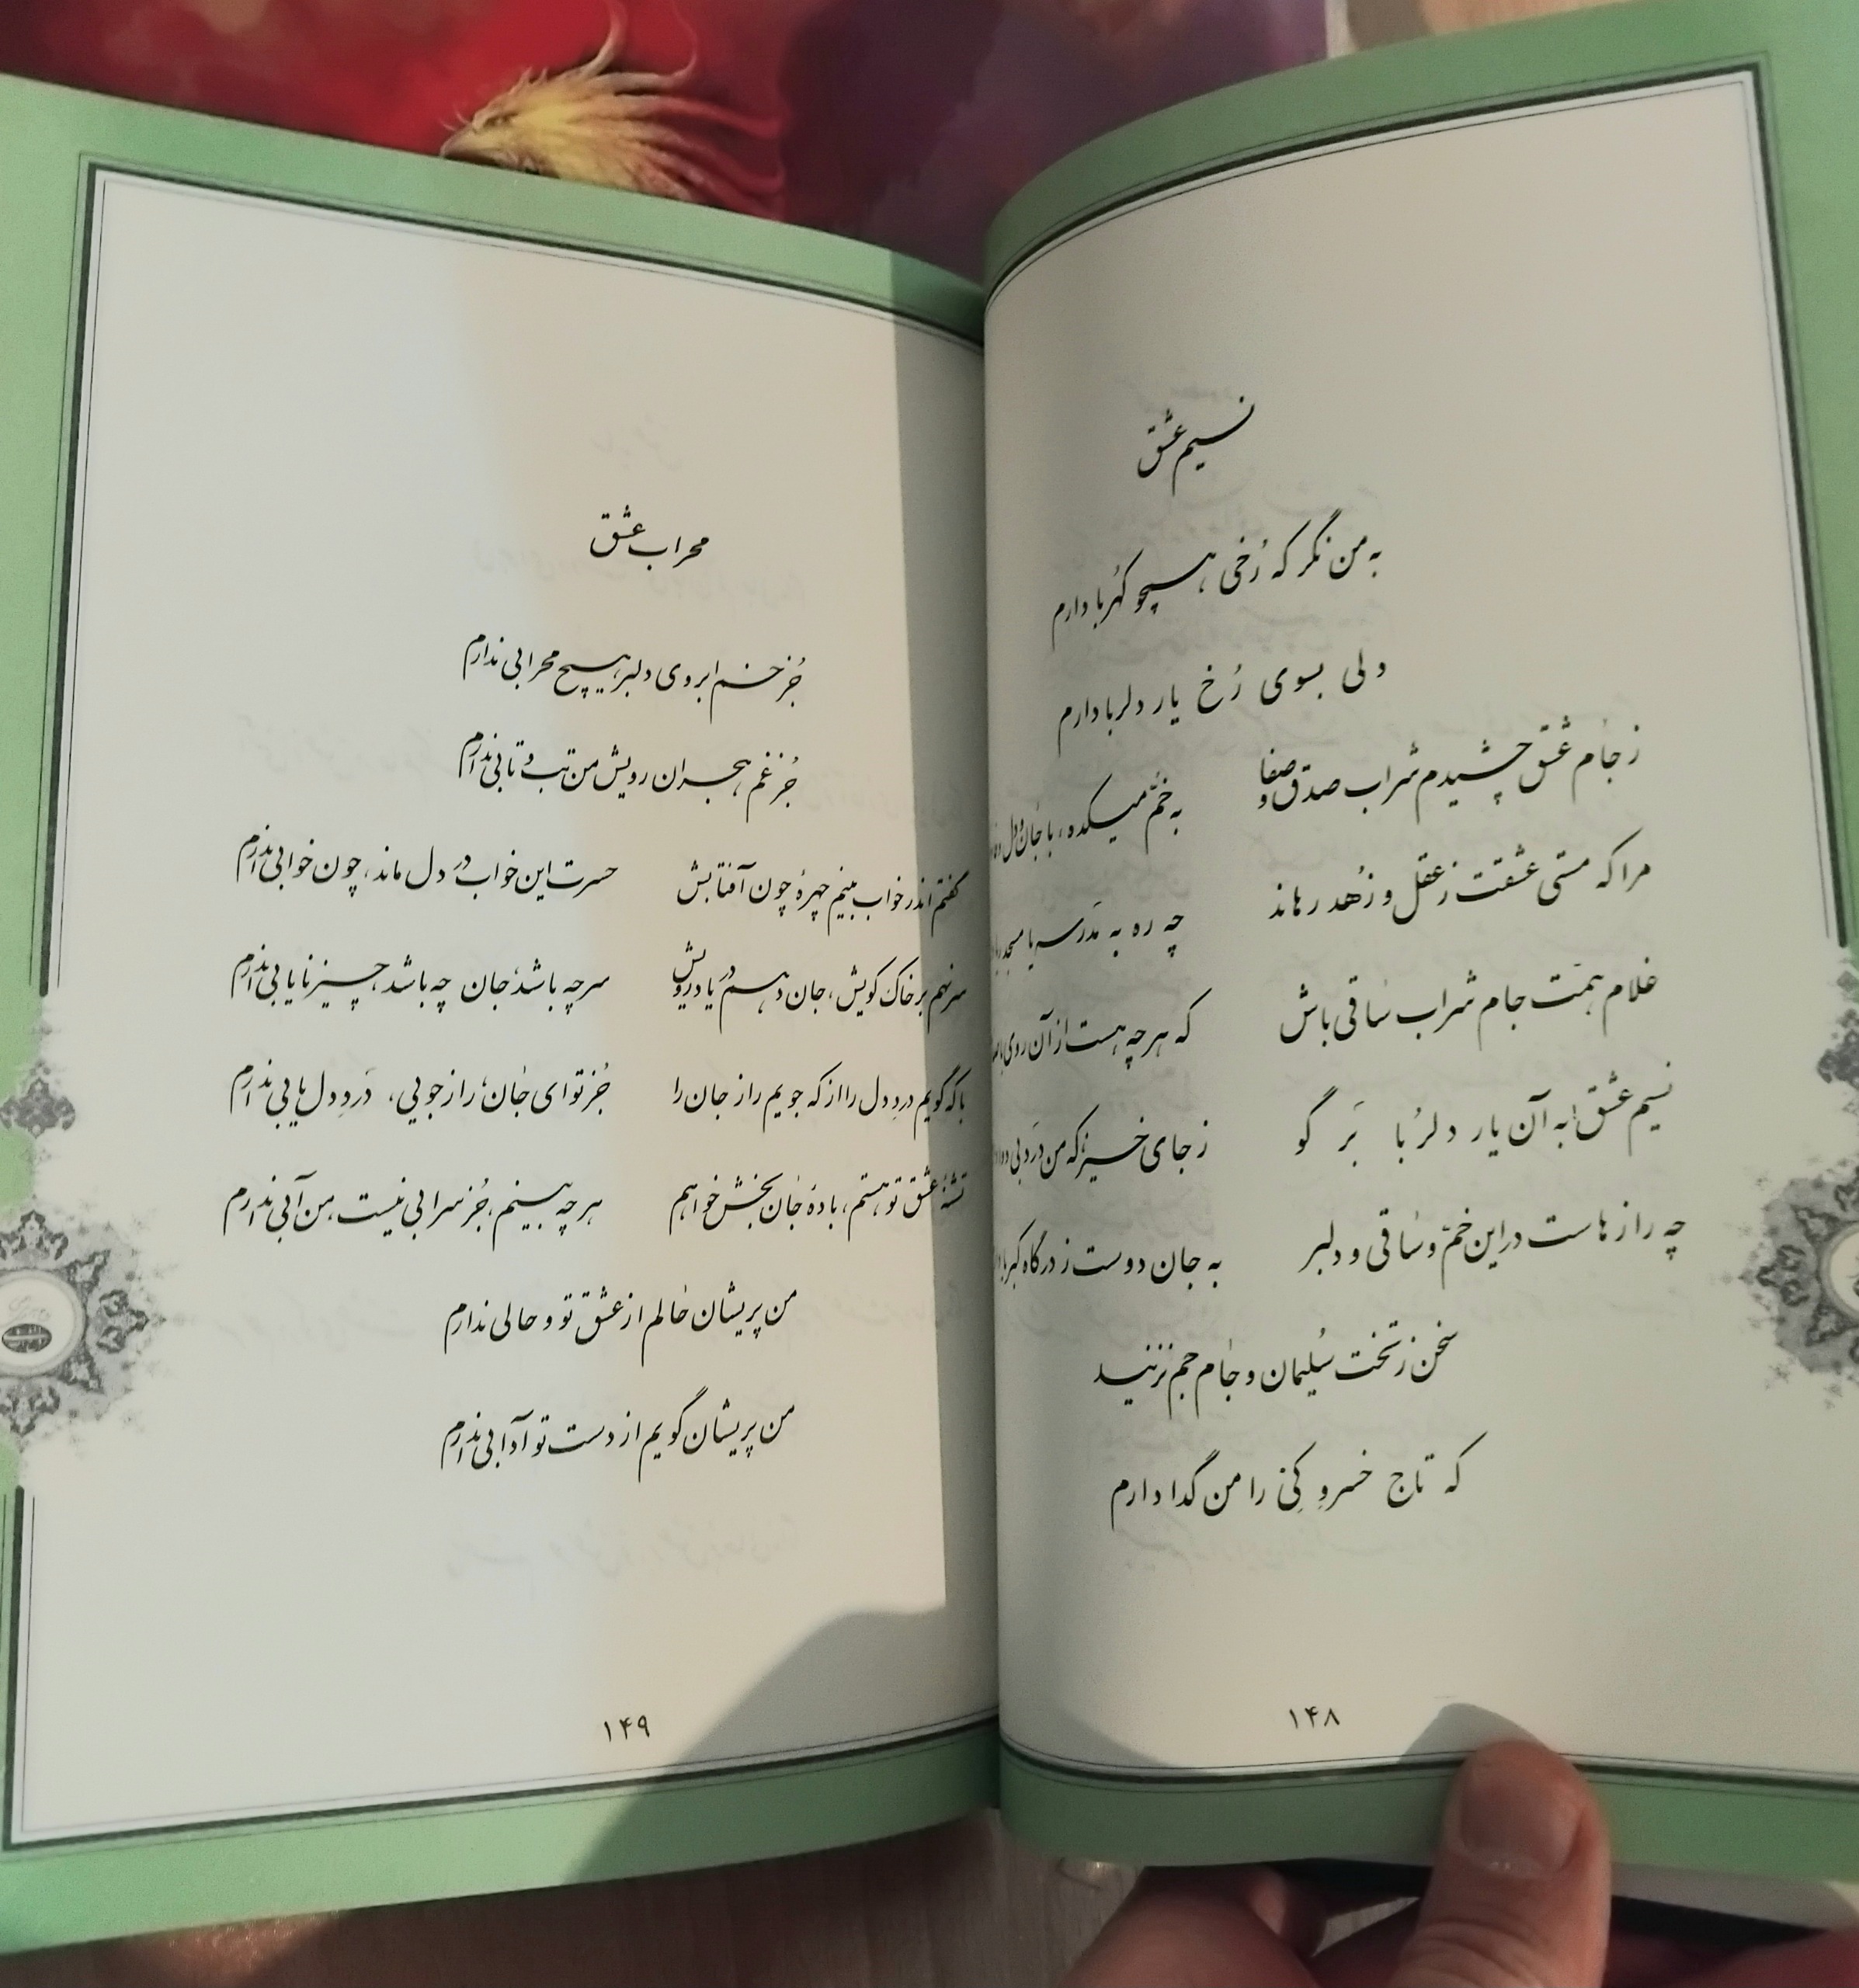 نسیم عشق
به من نگر که رُخی همچو کَهرُبا دارم
ولی بسوی رُخ یار دلربا دارم
ز جام عشق چشیدم شراب صدق و صفا به خُمّ میکده، با جان و دل
مرا که مستی عشقت ز عقل و زُهد رهاند چه ره به مَدرسه یا مسجد
غلام همّت جام شراب ساقی باش که هر چه هست از آن روی
نسیم عشق به آن یار دلرُبا بَر گو ز جای خیز که من دَرد بی
چه رازهاست در این خمّ و ساقی و دلبر به جان دوست ز درگاه کبریا
سخن ز تخت سُلیمان و جام جم نزنید
که تاج خسروِ کِیْ را من گدا دارم
۱۴۸
محراب عشق
جُز خم ابروی دلبر هیچ محرابی ندارم
جُز غم هجران رویش من تب و تابی ندارم
گفتم اندر خواب بینم چهرهٔ چون آفتابش حسرت این خواب در دل ماند، چون خوابی ندارم
سر نهم بر خاک کویش، جان دهم در یاد رویش سر چه باشد، جان چه باشد، چیز نایابی ندارم
با که گویم درد دل را از که جویم راز جان را جُز تو ای جان، رازجویی، دَردِ دل یابی ندارم
تشنهٔ عشق تو هستم، بادهٔ جان بخش خواهم هر چه بینم، جُز سرابی نیست، من آبی ندارم
من پریشان حالم از عشق تو و حالی ندارم
من پریشان گویم از دست تو آدابی ندارم
۱۴۹